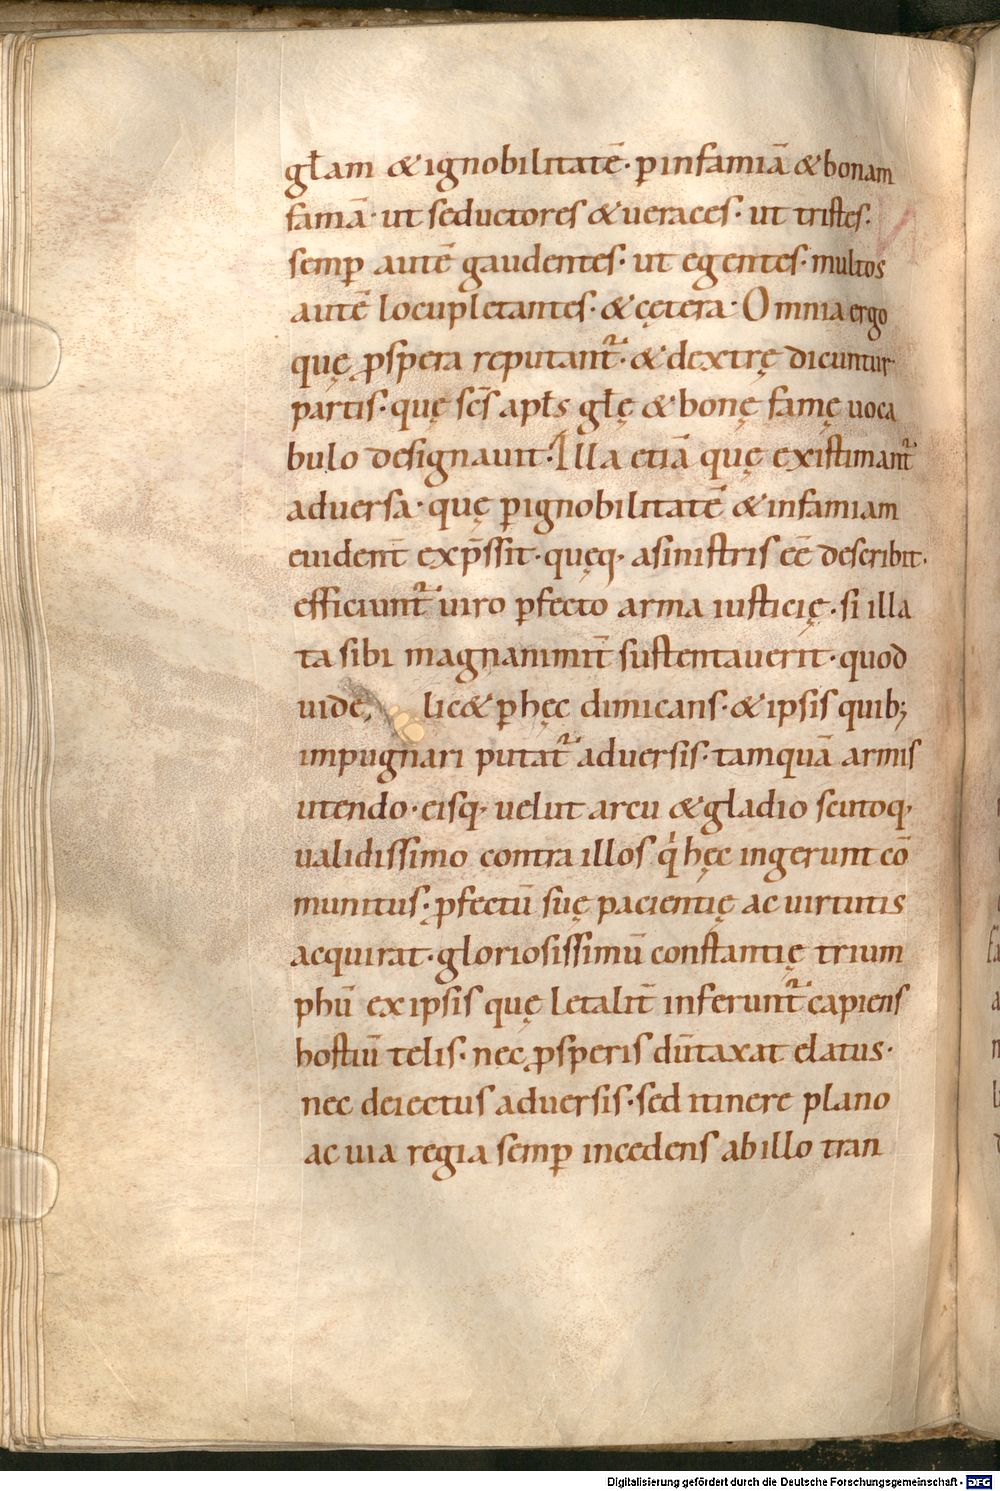 gƚam & ignobilitatē· ꝑ infamiā & bonam
famā· ut seductores & ueraces· ut tristes·
semꝑ autē gaudentes· ut egentes· multos
autē locupletantes· & cętera· Omnia ergo
quę ꝓspera reputant᷑· & dextrę dicuntur
partis· quę scs̄ aplꝉs gƚę & bonę famę uoca
bulo designauit· Illa etiā quę existimant᷑
aduersa· quę ꝑ ignobilitatē & infamiam
euident̄ exp̄ssit· quęq· a sinistris eē describit·
efficiunt᷑ uiro ꝑfecto arma iusticię· si illa
ta sibi magnanimit̄ sustentauerit· quod
uide lic& ꝑ hęc dimicans· & ipsis quib;
impugnari putat᷑ aduersis· tamquā armis
utendo· eisq· uelut arcu & gladio scutoq·
ualidissimo contra illos q̇ hęc ingerunt cō
munitus· ꝓfectū suę pacientię ac uirtutis
acquirat· gloriosissimū constantię trium
phū ex ipsis quę letalit̄ inferunt᷑ capiens
hostiū telis· nec ꝓsperis dūtaxat elatus·
nec deiectus aduersis· sed itinere plano
ac uia regia semꝑ incedens ab illo tran
Digitalisierung gefördert durch die Deutsche Forschungsgemeinschaft - DFG